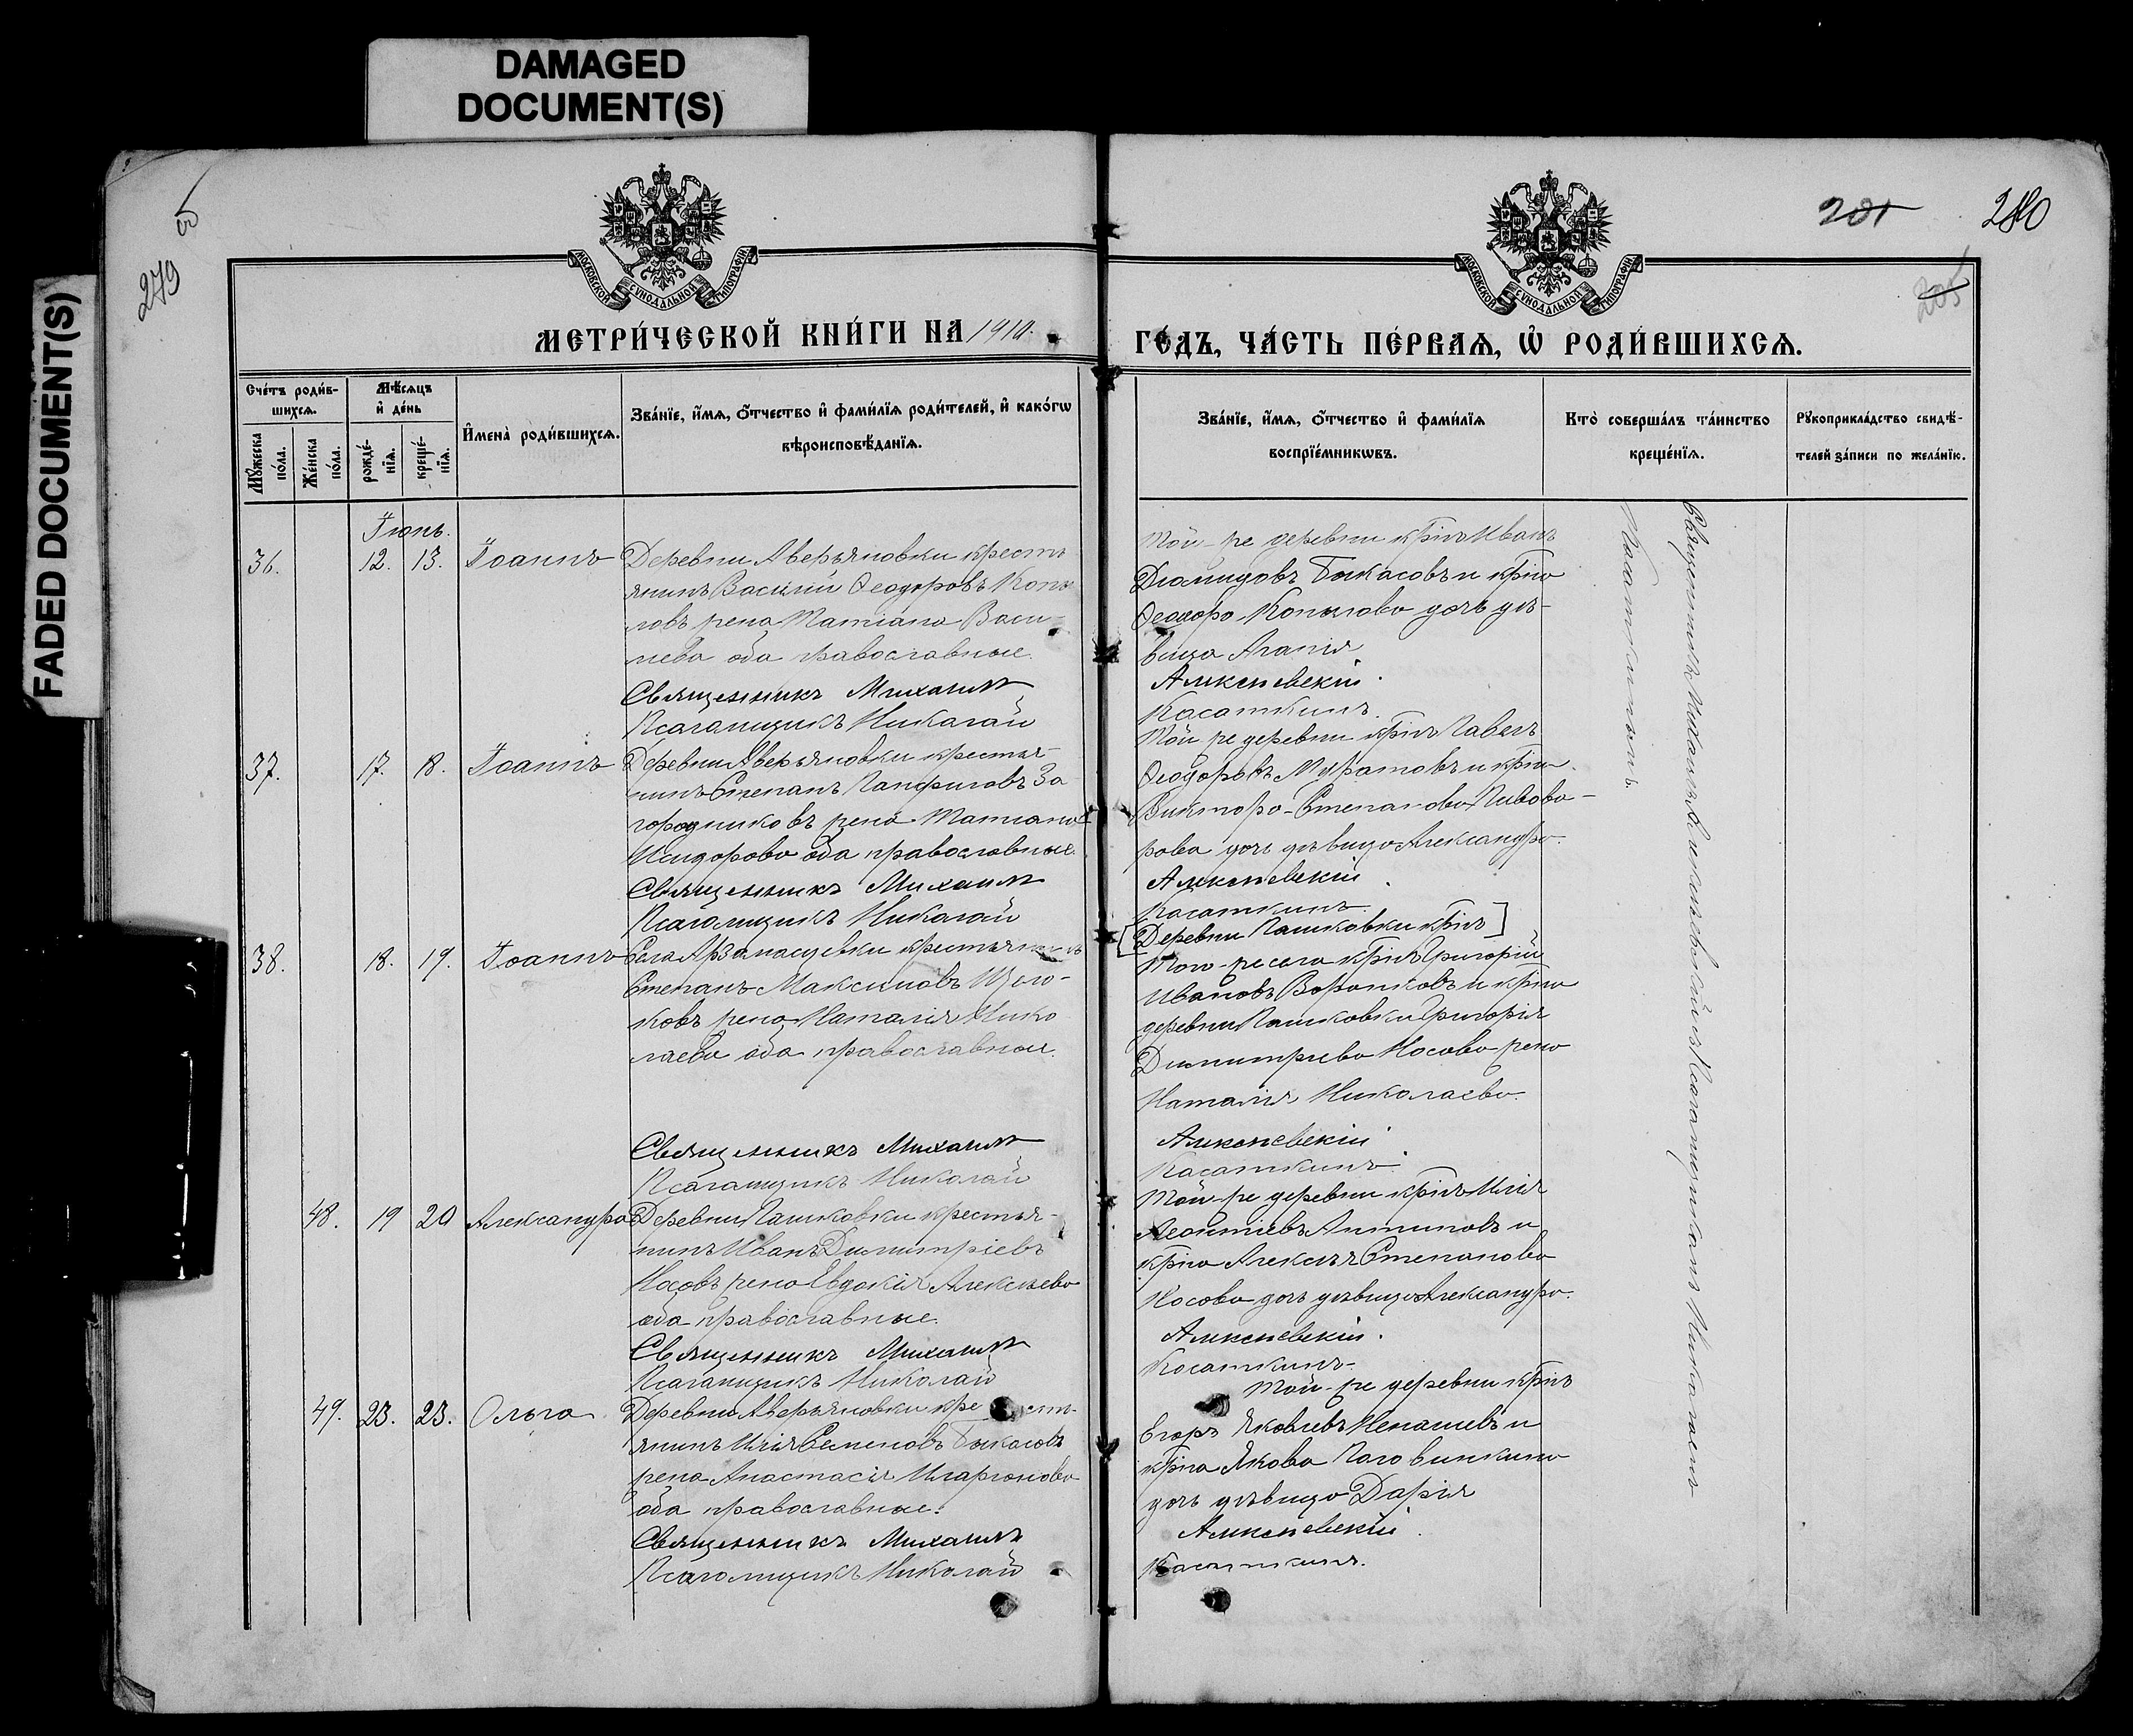 DAMAGED
DOCUMENT(S)
FADED DOCUMENT(S)
279
об
201
280
205
МОСКОВСКОЙ СУНОДАЛЬНОЙ ТИПОГРАФІИ
МОСКОВСКОЙ СУНОДАЛЬНОЙ ТИПОГРАФІИ
МЕТРИ́ЧЕСКОЙ КНИ́ГИ НА 1910.
ГО́ДЪ, ЧА́СТЬ ПЕ́РВАѦ, Ѡ҆ РОДИ́ВШИХСѦ.
Сче́тъ роди́в-
шихсѧ.
Мѣ́сѧцъ
и҆ де́нь
Мꙋ́жеска
по́ла.
Же́нска
по́ла.
рожде́-
нїѧ.
креще́-
нїѧ.
И҆мена̀ роди́вшихсѧ.
Зва́нїе, и҆́мѧ, ѻ҆́тчество и҆ фами́лїѧ роди́телей, и҆ како́гѡ
вѣроисповѣ́данїѧ.
Зва́нїе, и҆́мѧ, ѻ҆́тчество и҆ фами́лїѧ
воспрїе́мникѡвъ.
Кто̀ соверша́лъ та́инство
креще́нїѧ.
Рꙋкоприкла́дство свидѣ́-
телей за́писи по жела́нїю.
Іюнь.
36. 12. 13. Іоаннъ Деревни Аверьяновки кресть
янинъ Василій Ѳеодоровъ Копы
ловъ жена Татіана Васи-
лева оба православные.
Священникъ Михаилъ
Псаломщикъ Николай
Той-же деревни кр-нъ Иванъ
Дїомидовъ Быкасовъ и кр-на
Ѳеодора Копылова дочь дѣ-
вица Агапія
Алмкеневскій.
Касаткинъ.
37. 17. 18. Іоаннъ Деревни Аверьяновки крестья-
нинъ Степанъ Панфиловъ За-
городниковъ жена Татіана
Исидорова оба православные.
Священникъ Михаилъ
Псаломщикъ Николай
Той же деревни кр-нъ Павелъ
Ѳеодоровъ Муратовъ и кр-на
Виктора Степанова Пивова-
рова дочь дѣвица Александра.
Касаткинъ.
38. 18. 19. Іоаннъ Села Арзамасцевки крестьянинъ
Степанъ Максимовъ Щего-
ковъ жена Наталія Нико
лаева оба православные.
Священникъ Михаилъ
Псаломщикъ Николай
[Деревни Пашковки кр-нъ]
Того-же села кр-нъ Григорій
Ивановъ Воронковъ и кр-на
деревни Пашковки Григорія
Димитріева Носова жена
Наталія Николаева.
Касаткинъ.
48. 19 20 Александра Деревни Пашковки крестья-
нинъ Иванъ Димитріевъ
Носовъ жена Евдокія Алексѣева
оба православные.
Священникъ Михаилъ
Псаломщикъ Николай
Той-же деревни кр-нъ Илія
Леонтіевъ Антиповъ и
кр-на Алексѣя Степанова
Носова дочь дѣвица Александра.
Касаткинъ.
49. 23. 23. Ольга Деревни Аверьяновки кресть-
янинъ Илія Семеновъ Быкасовъ
жена Анастасія Иларіонова
оба православные.
Священникъ Михаилъ
Псаломщикъ Николай
Той-же деревни кр-нъ
Егоръ Яковлевъ Ненашевъ и
кр-на Якова Головинкина
дочь дѣвица Дарія
Касаткинъ.
Священникъ Михаилъ съ Псаломщикомъ Николаемъ
Касаткинымъ.